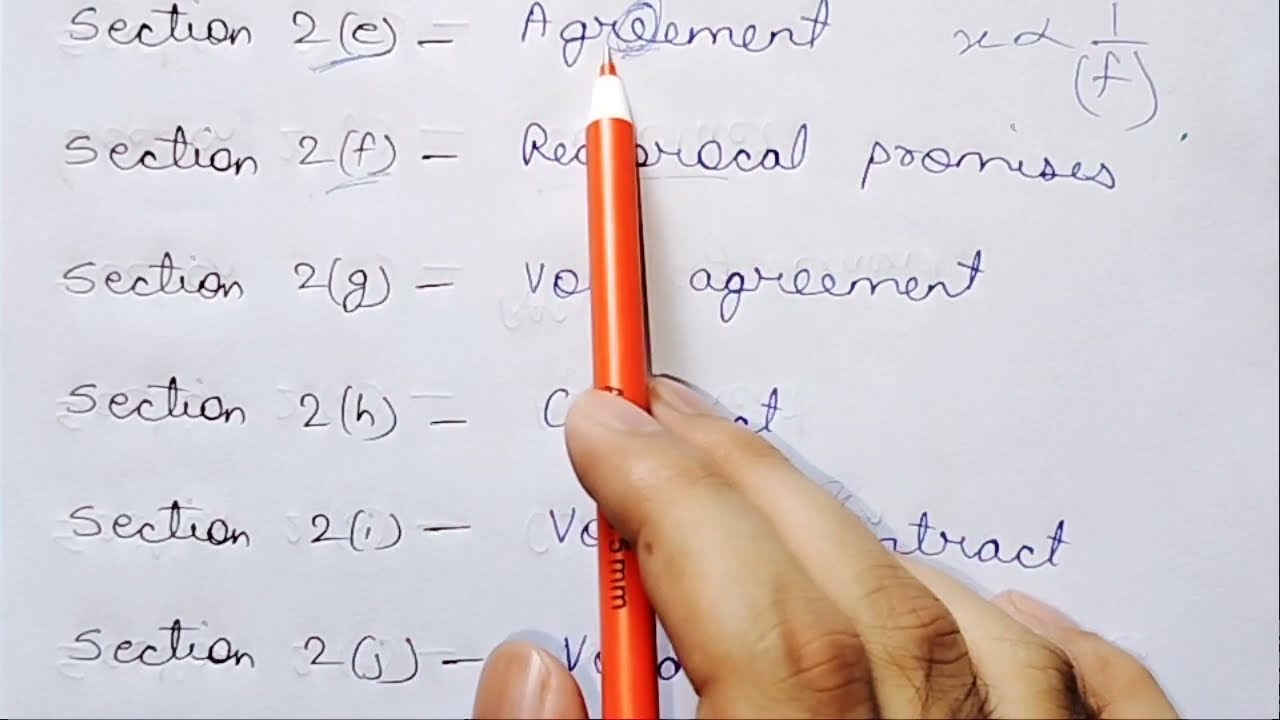 Section 2(e) = Agreement x ∝ 1/(f)
Section 2(f) = Reciprocal promises
Section 2(g) = agreement
Section 2(h) =
Section 2(i) —
Section 2(j) —
5mm